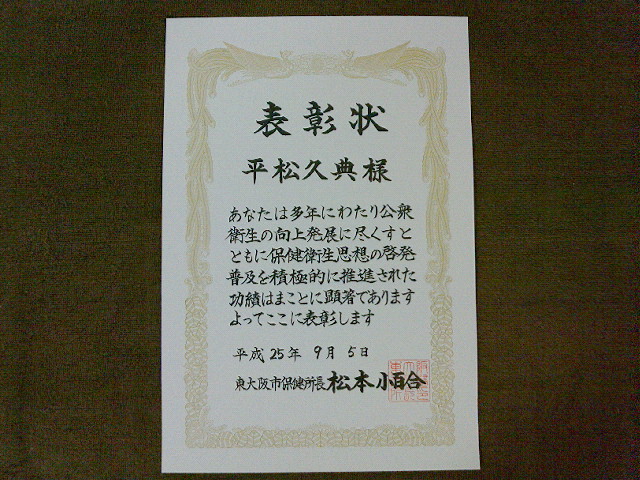 表彰状
平松久典様
あなたは多年にわたり公衆
衛生の向上発展に尽くすと
ともに保健衛生思想の啓発
普及を積極的に推進された
功績はまことに顕著であります
よってここに表彰します
平成25年 9月 5日
東大阪市保健所長 松本小百合